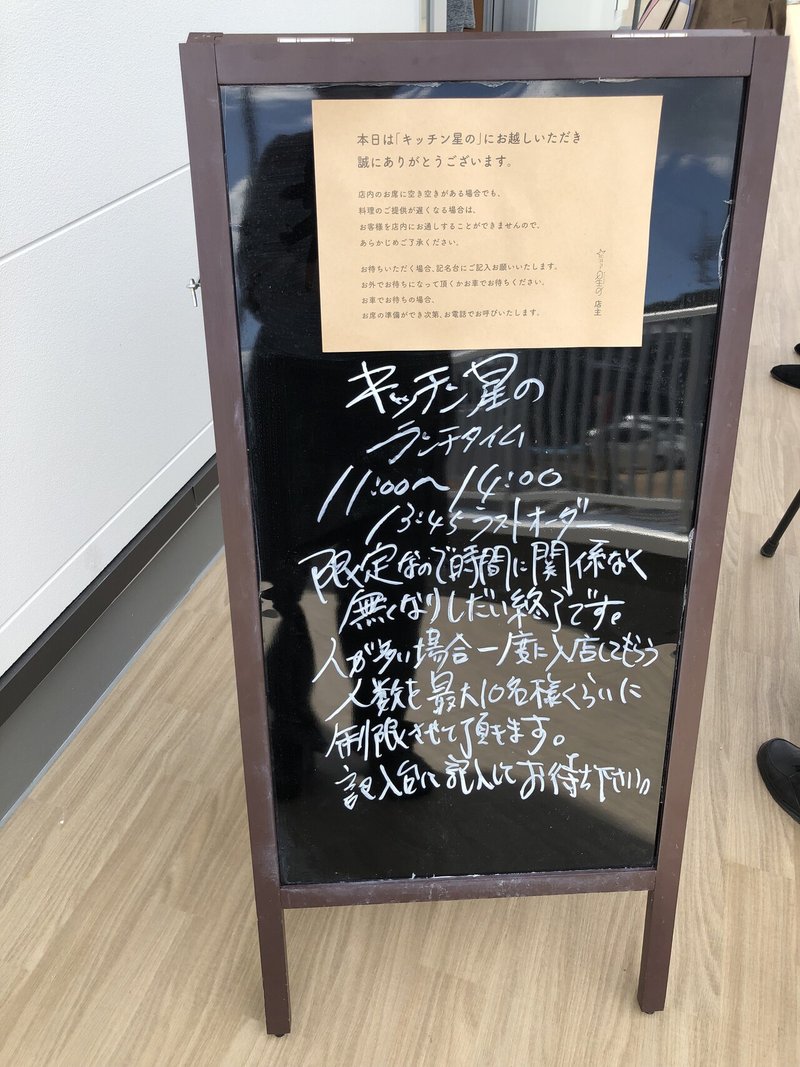 本日は「キッチン星の」にお越しいただき
誠にありがとうございます。
店内のお席に空き空きがある場合でも、
料理のご提供が遅くなる場合は、
お客様を店内にお通しすることができませんので、
あらかじめご了承ください。
お待ちいただく場合、記名台にご記入お願いいたします。
お外でお待ちになって頂くかお車でお待ちください。
お車でお待ちの場合、
お席の準備ができ次第、お電話でお呼びいたします。
星の 店主
キッチン星の
ランチタイム
11:00〜14:00
13:45ラストオーダー
限定なので時間に関係なく
無くなりしだい終了です。
人が多い場合一度に入店してもらう
人数を最大10名様くらいに
制限させて頂きます。
記入台に記入してお待ち下さい。